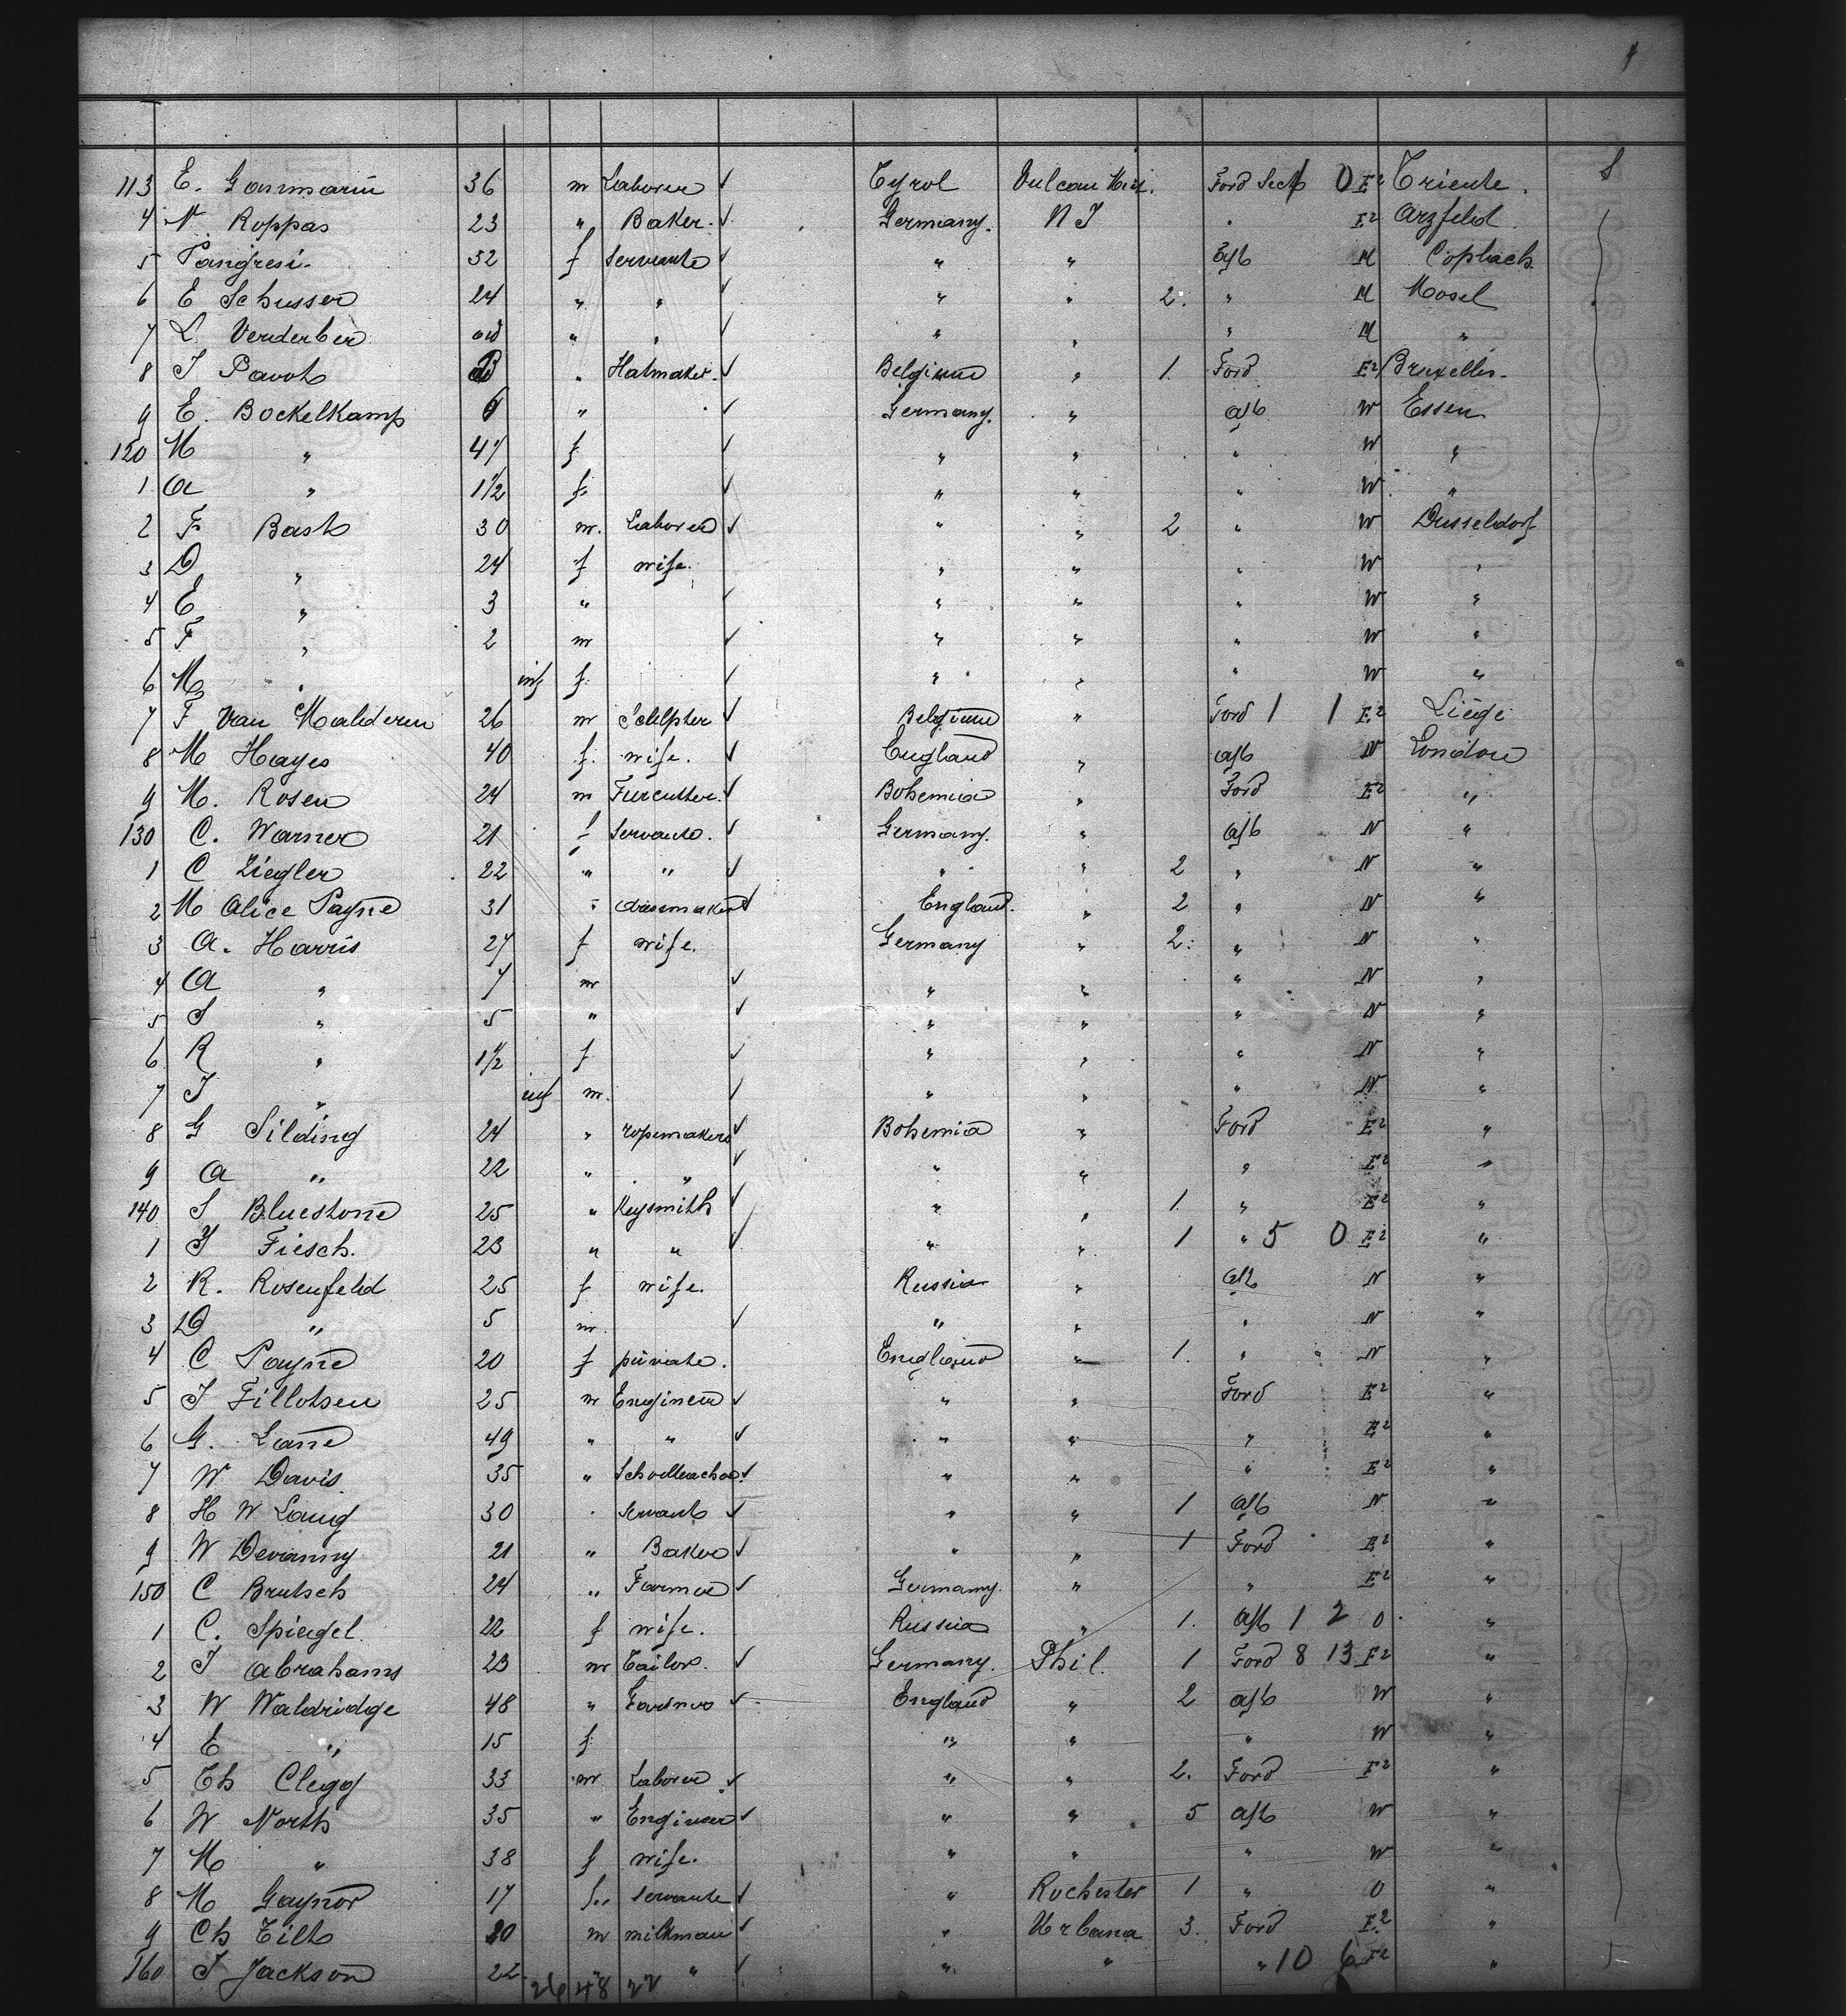 113 E. Ganmarin 36 m Laborer ✓ Tyrol Vulcan Mich. Ford Sect 0 E² Triente.
4 N. Roppas 23 " Baker. ✓ Germany. N J " E² Arzfeld
5 Pangresi 32 f Servante ✓ " " aft M Coplach.
6 E Schusser 24 " " ✓ " " 2. " M Mosel
7 L. Verderber " " ✓ " " " M "
8 J Pavot " Hatmaker. ✓ Belgium " 1. Ford E² Bruxelles.
9 E. Bockelkamp 6 " ✓ Germany. " aft W Essen
120 M " 47 f ✓ " " " W "
1 A " 1 1/2 f. ✓ " " " W "
2 F Bast 30 m. Laborer ✓ " " 2 " W Dusseldorf
3 D " 24 f wife. " " " W "
4 E " 3 " ✓ " " " W "
5 F " 2 m ✓ " " " W "
6 M " inf f. ✓ " " " W "
7 F Van Malderen 26 m Sculpter ✓ Belgium " Ford 1 1 E² Liège
8 M Hayes 40 f. wife. ✓ England " aft N London
9 M. Rosen 24 m Furcutter. ✓ Bohemia " Ford E² "
130 C. Warner 21 f Servante. ✓ Germany. " aft N "
1 C Ziegler 22 " " ✓ " " 2 " N "
2 M Alice Payne 31 " dressmaker ✓ England. " 2 " N "
3 A. Harris 27 f wife. Germany " 2. " N "
4 A " 7 m ✓ " " " N "
5 S " 5 " ✓ " " " N "
6 R " 1 1/2 f ✓ " " " N "
7 J " inf m. ✓ " " " N "
8 G Silding 24 " ropemakers ✓ Bohemia " Ford E² "
9 A " 22 " " ✓ " " " E² "
140 S Bluestone 25 " Keysmith ✓ " " 1. " E² "
1 J Fiesch. 23 " " ✓ " " 1 " 5 0 E² "
2 R. Rosenfeld 25 f wife. Russia " aft N "
3 D " 5 m. ✓ " " " N "
4 C Payne 20 f private. England " 1. " N "
5 J Fillotsen 25 m Engineer ✓ " " Ford E² "
6 G. Lane 49 " " ✓ " " " E² "
7 W Davis. 35 " ✓ " " " E² "
8 H W Lang 30 " servant ✓ " " 1 aft N "
9 W Devanny 21 " Baker ✓ " " 1 Ford E² "
150 C Brutsch 24 " Farmer ✓ Germany. " " E² "
1 C. Spiegel 22 f wife. Russia " 1. aft 1 2 O "
2 J Abrahams 23 m Tailor. ✓ Germany. Phil. 1 Ford 8 13 E² "
3 W Waldridge 48 " ✓ England " 2 aft W "
4 E " 15 f " " " W "
5 Th Clegg 33 m Laborer ✓ " " 2. Ford E² "
6 W North 35 " Engineer ✓ " " 5 aft W "
7 M " 38 f wife. " " " W "
8 M Gaynor 17 f " servante ✓ " Rochester 1 " O "
9 Ch Tilt 20 m milkman ✓ " Urbana 3. Ford E² "
160 J Jackson 22. " " ✓ " " " 10 6 E² "
26 48 22